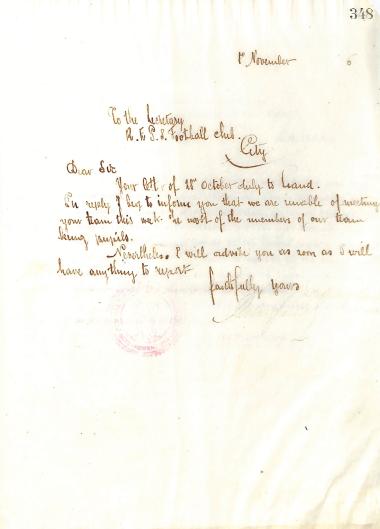 348
1st November 6
To the Secretary
R. & P. S. Football club.
City
Dear Sir
Your lttr. of 18th October duly to hand.
In reply I beg to inform you that we are unable of meeting
your team this week. The most of the members of our team
being pupils.
Nevertheless I will advise you as soon as I will
have anything to report
faithfully yours